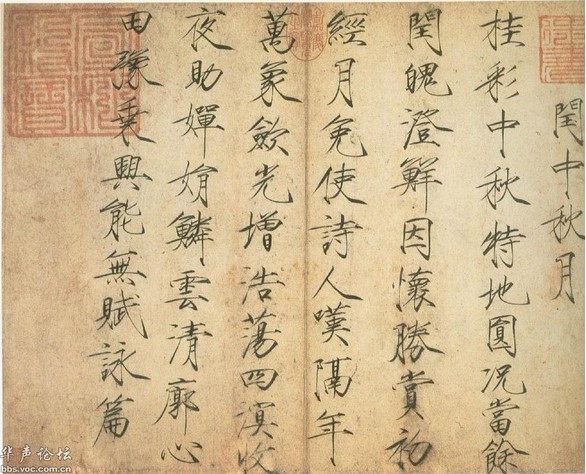 閏中秋月
桂彩中秋特地圓況當餘
閏魄澄鮮因懷勝賞初
經月免使詩人嘆隔年
萬象歛光增浩蕩四溟收
夜助嬋娟鱗雲清廓心
田豫乘興能無賦詠篇
华声论坛
bbs.voc.com.cn